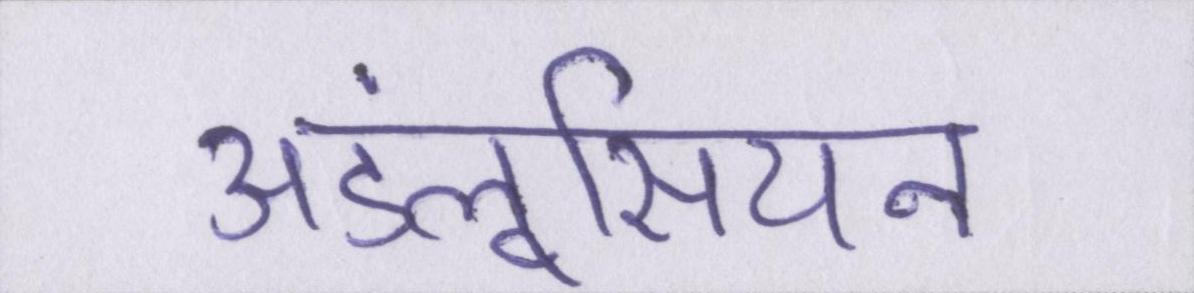 अडंलूसियन